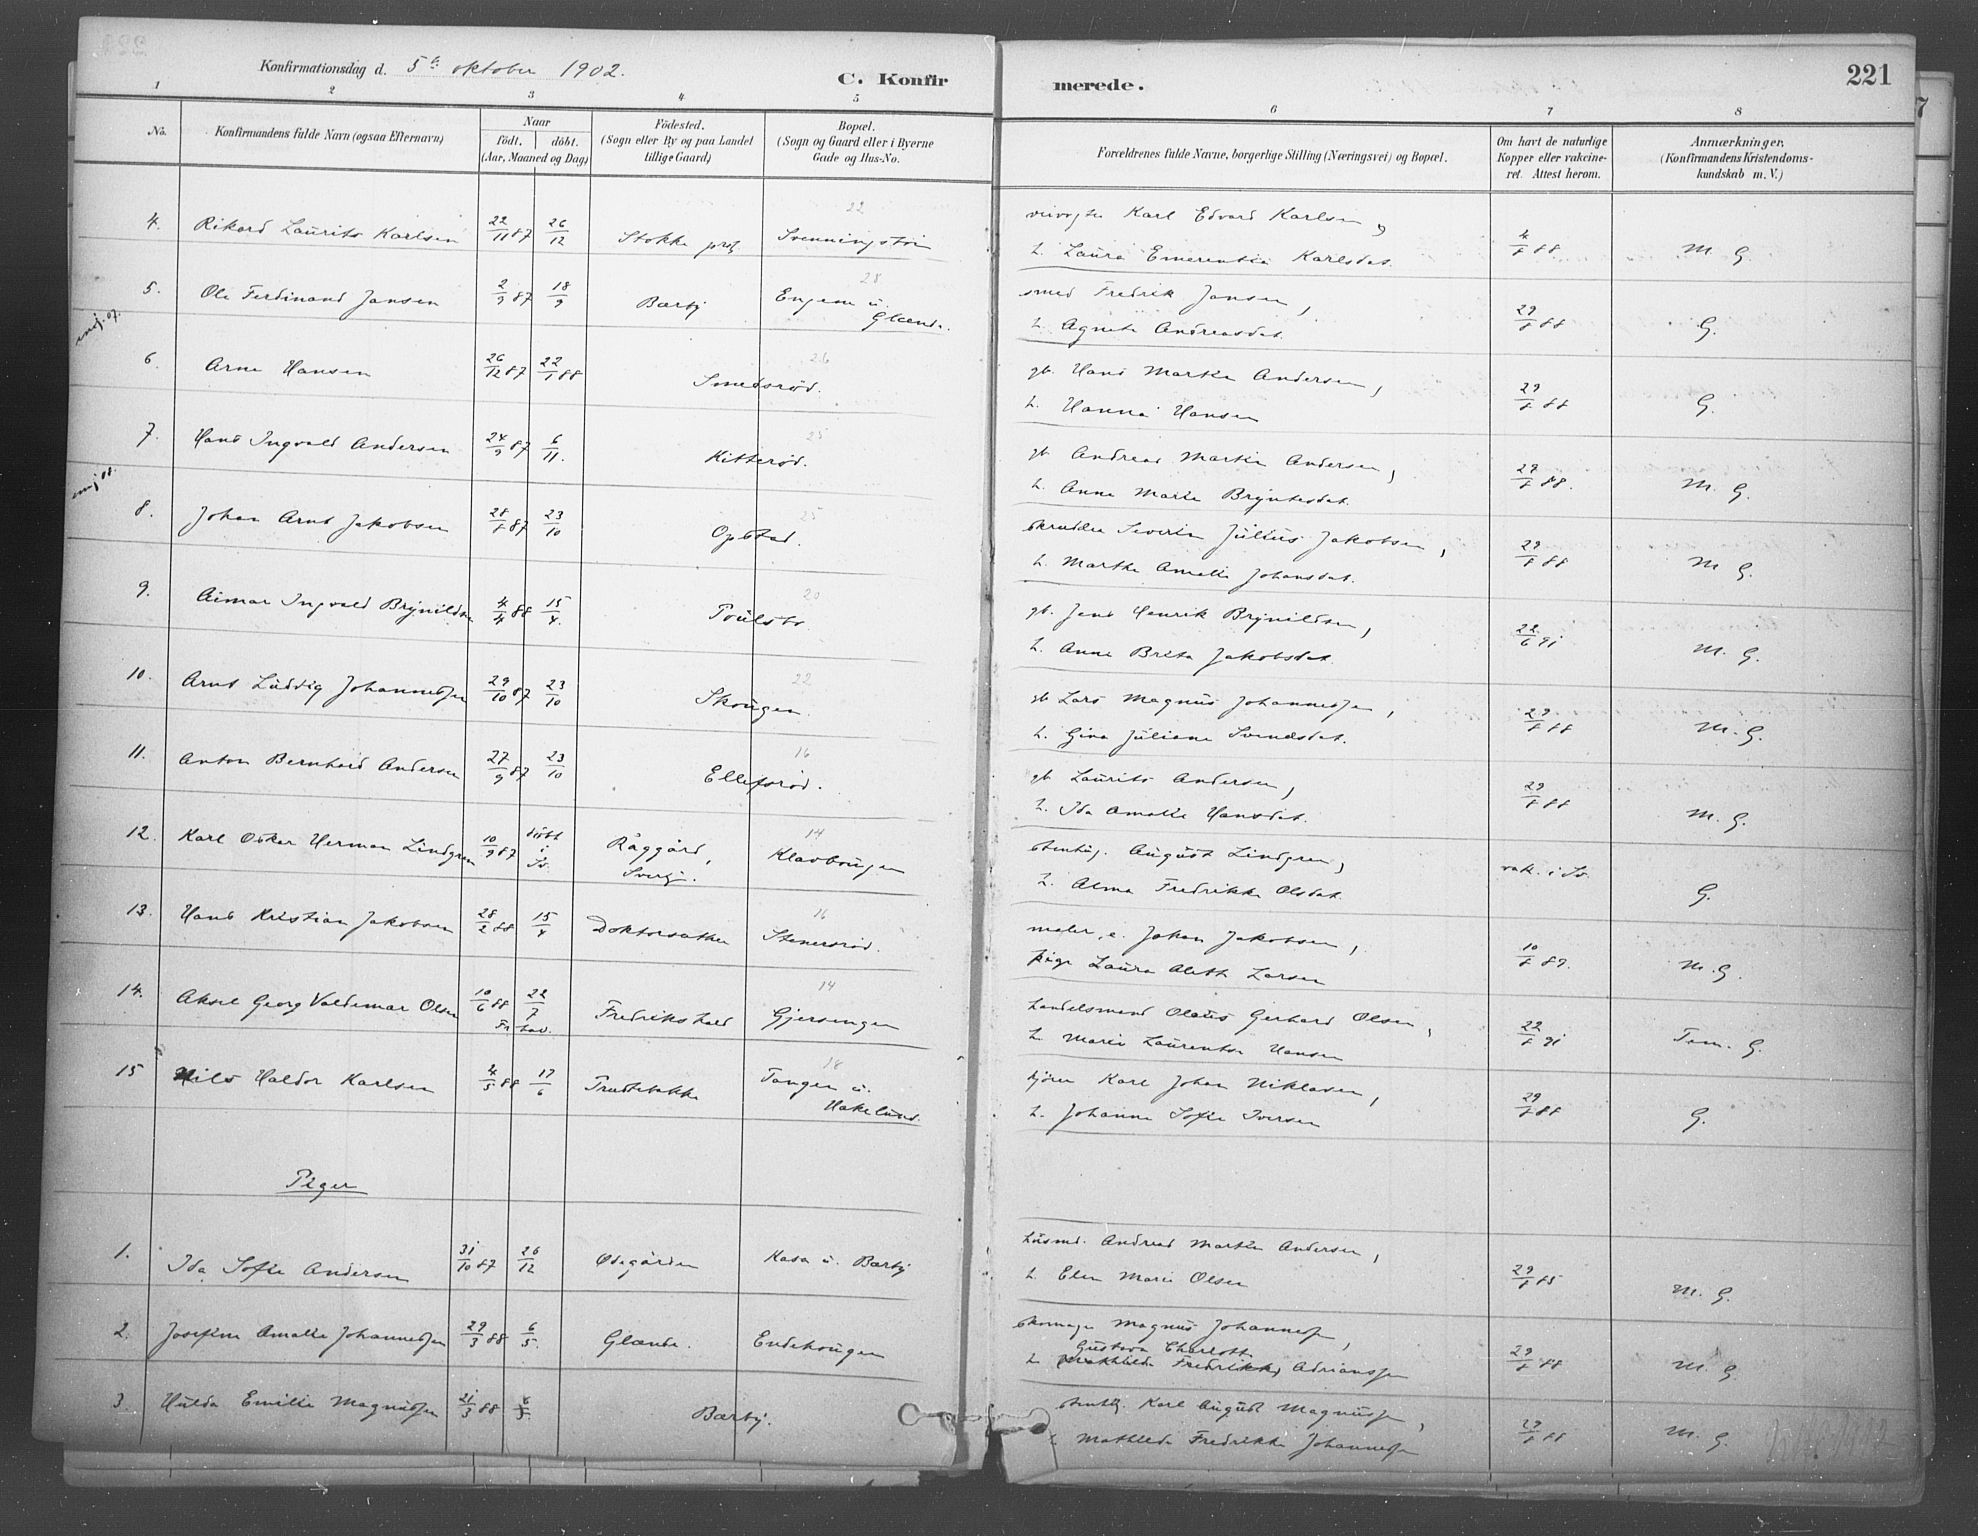 Konfirmationsdag d. 5te oktober 1902.
C. Konfirmerede.
221
1 2 3 4 5 6 7 8
No.
Konfirmandens fulde Navn (ogsaa Efternavn)
Naar
født. døbt.
(Aar, Maaned og Dag)
Fødested.
(Sogn eller By og paa Landet
tillige Gaard)
Bopæl.
(Sogn og Gaard eller i Byerne
Gade og Hus-No.
Forældrenes fulde Navne, borgerlige Stilling (Næringsvei) og Bopæl.
Om havt de naturlige
Kopper eller vakcine-
ret. Attest herom.
Anmærkninger.
(Konfirmandens Kristendoms-
kundskab m. V.)
4. Rikard Laurits Karlsen 22/11 87 26/12 Stokke 22 Karl Edvard Karlsen,
h. Laura Emerentia Karlsdat. 4/8 88 M. G.
5. Ole Ferdinand Jansen 2/9 87 18/9 Bærby 28 Engene u. Glænde. smed Fredrik Jansen,
h. Agnete Andreasdat. 29/8 88 G.
6. Arne Hansen 26/12 87 22/1 88 Smedsrød. 26 gb. Hans Martin Andersen,
h. Hanna Hansen 29/8 88 G.
7. Hans Ingvald Andersen 24/9 87 6/11. Kitterød. 25 gb. Andreas Martin Andersen,
h. Anne Marie Bryntesdat. 29/8 88. M. G.
8. Johan Arnt Jakobsen 28/8 87 23/10 Opstad. 25 skrædder Severin Julius Jakobsen,
h. Marthe Amalie Johansdat. 29/8 88 M. G.
9. Aimar Ingvald Brynildsen 4/4 88 15/4. Poulsbo. 20 gb. Jens Henrik Brynildsen,
h. Anne Brita Jakobsdat. 22/6 91 M. G.
10. Arnt Ludvig Johannessen 29/10 87 23/10 Skougen. 22 gb Lars Magnus Johannessen,
h. Gina Juliane Svendsdat. 29/8 88 M. G.
11. Anton Bernhard Andersen 27/9 87 23/10 Ellefsrød. 16 gb Laurits Andersen,
h. Ida Amalie Hansdat. 29/8 88 M. G.
12. Karl Oskar Herman Lindgren 10/9 87 døbt i Sv. Råggård, Sverig. 14 Klavhougen stenhug. August Lindgren,
h. Alma Fredrikke Olsdat. vak. i Sv. G.
13. Hans Kristian Jakobsen 28/2 88 15/4 Doktorsæther 16 Stenersrød. maler, e. Johan Jakobsen,
pige Laura Aleth Larsen 10/8 89. M. G.
14. Aksel Georg Valdemar Olsen 10/6 88 22/7 Fr. hald. Fredrikshald 14 Gjersengen handelsmand Olaus Gerhard Olsen,
h. Marie Laurentse Hansen 22/8 91 Tem. G.
15 Nils Haldor Karlsen 4/5 88 17/6 18 Tangen u. Hakelund. kjører Karl Johan Niklasen,
h. Johanne Sofie Iversen 29/8 88 G.
Piger
1. Ida Sofie Andersen 31/10 87 26/12 Ødegården Kasa u. Bærby husmd. Andreas Martin Andersen,
h. Elen Marie Olsen 29/8 85 M. G.
2. Josefine Amalie Johannessen 29/3 88 6/5. Glænde. Endehougen skomager Magnus Johannessen,
Gustava Charlotte
h. Mathilde Fredrikke Adriansen 29/8 88 M. G.
3. Hulda Emilie Magnussen 21/3 88 6/5. Bærby. stenhg. Karl August Magnussen,
h Mathilde Fredrikke Johannessen 29/8 88 M. G.